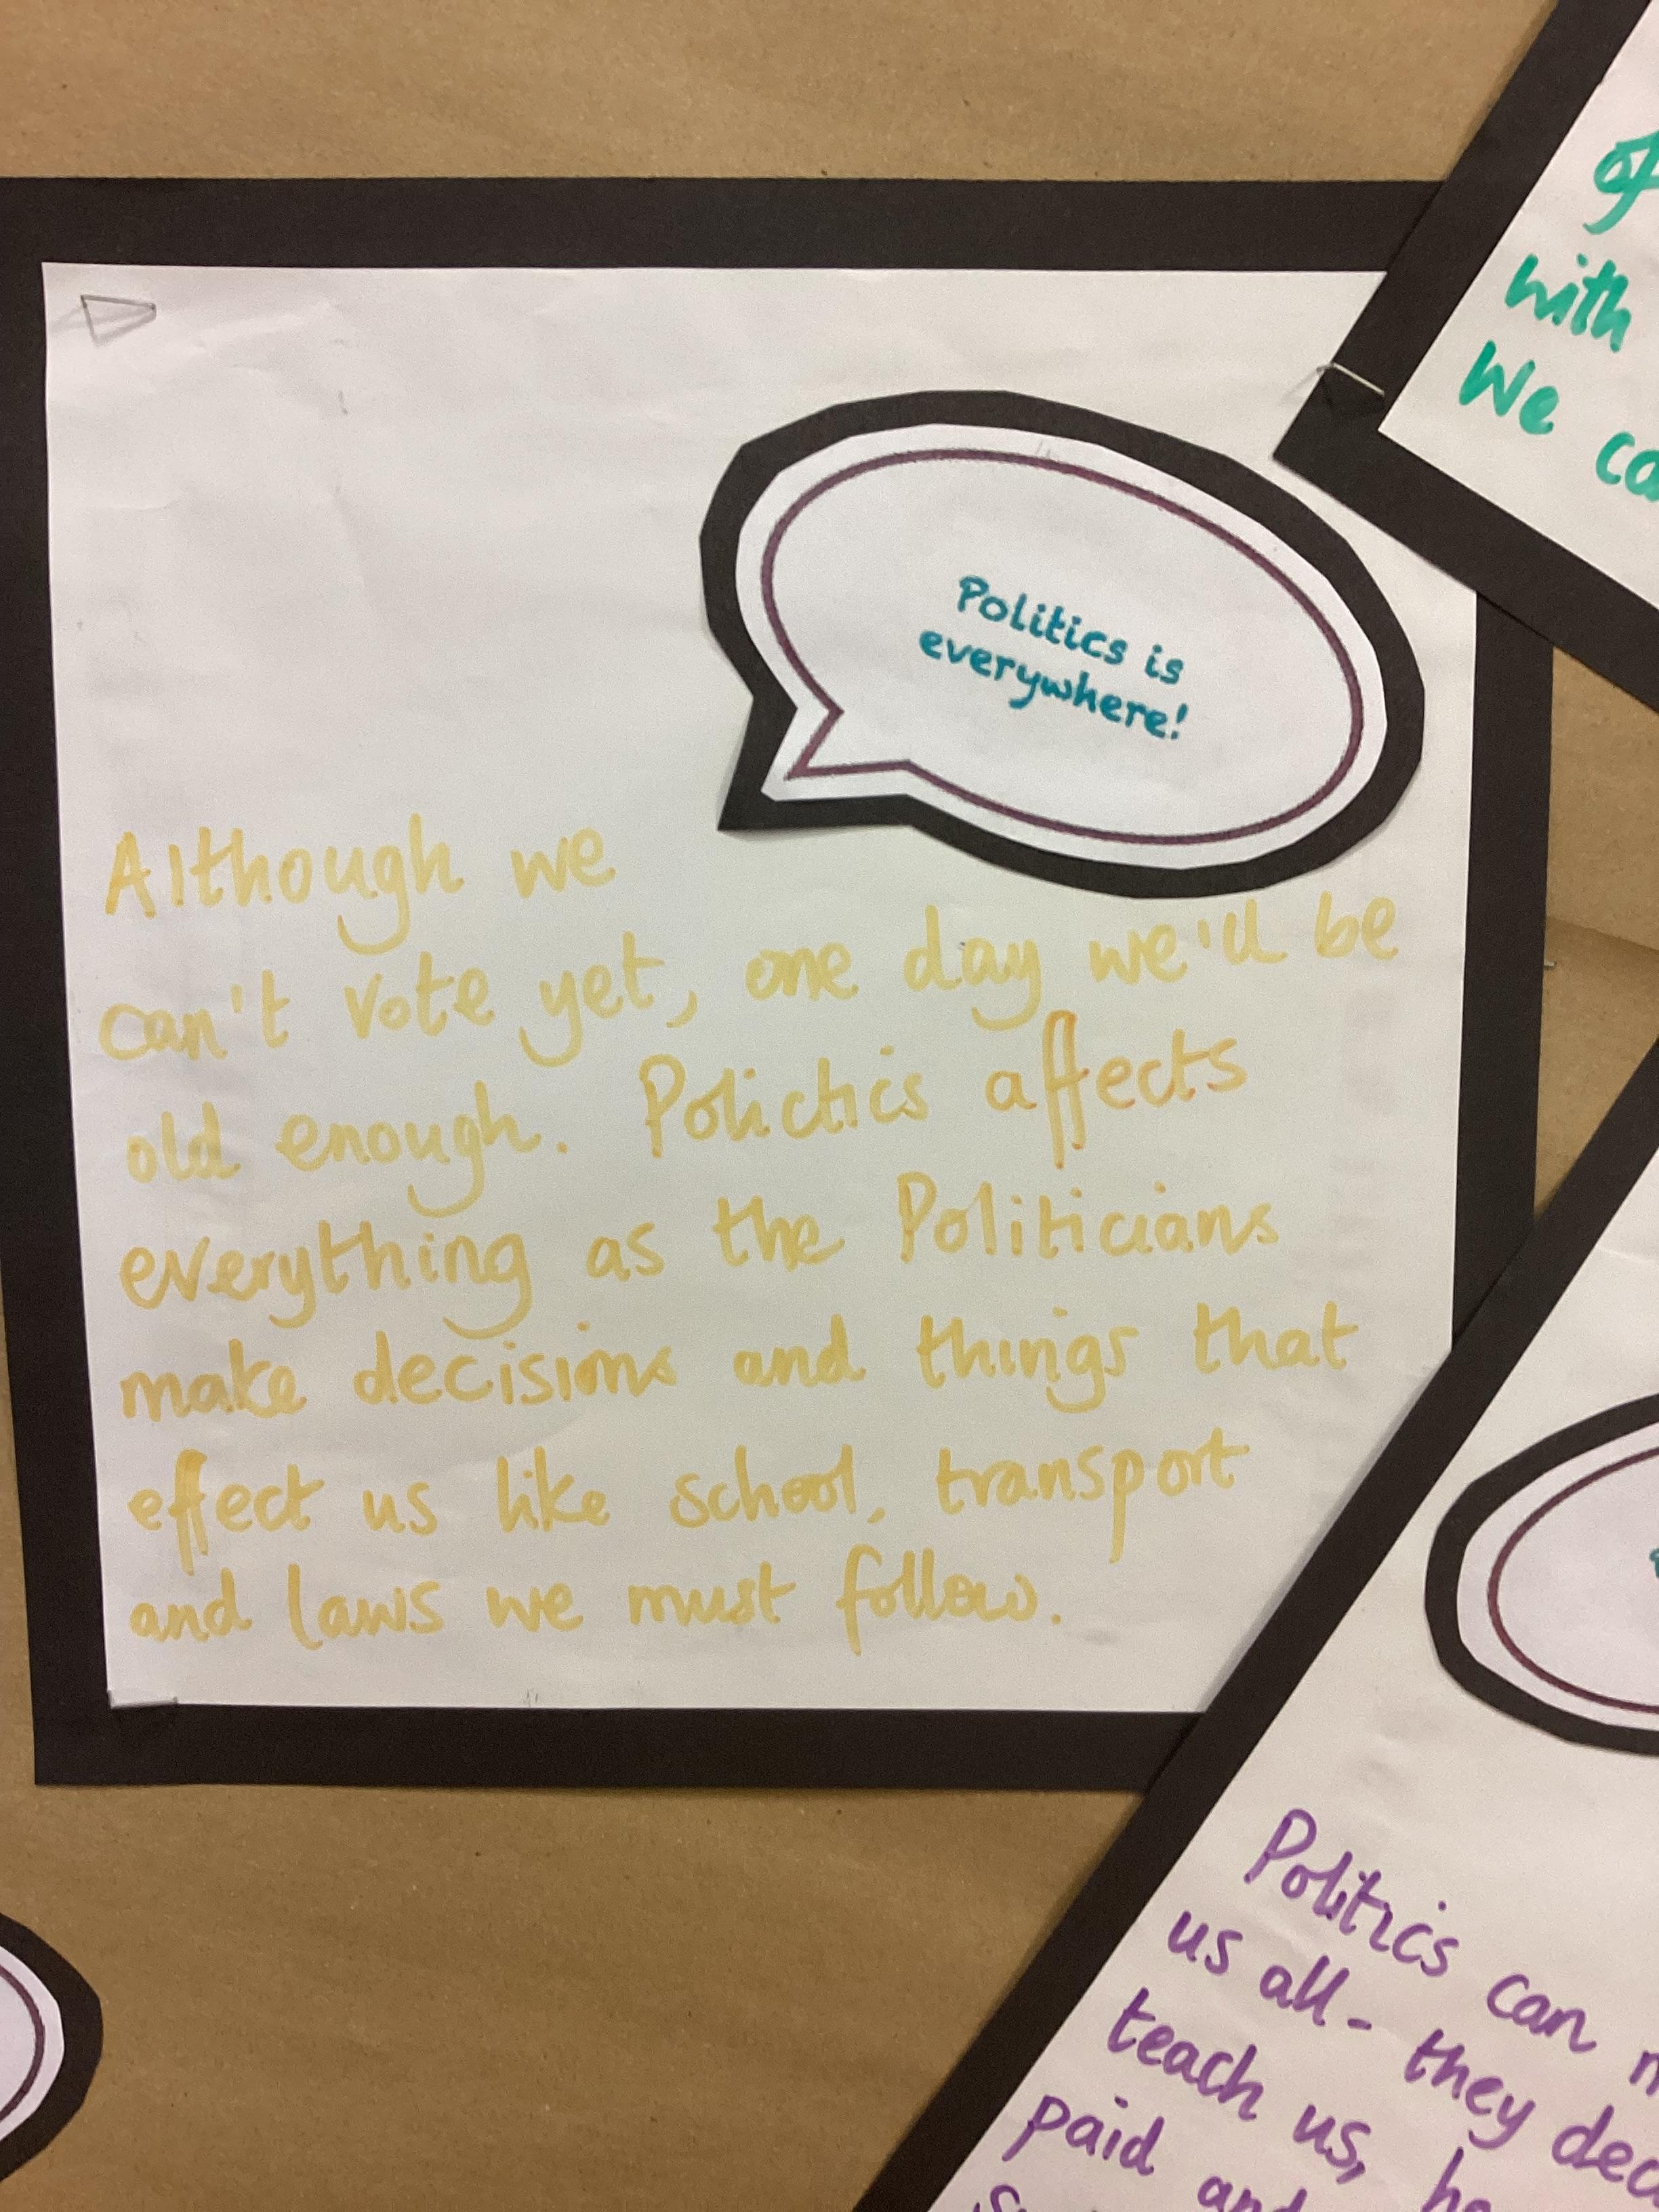 Politics is
everywhere!
Although we
can't vote yet, one day we'll be
old enough. Polictics affects
everything as the Politicians
make decisions and things that
effect us like school, transport
and laws we must follow.
of
with
We
Politics can
us all - they
teach us,
paid and